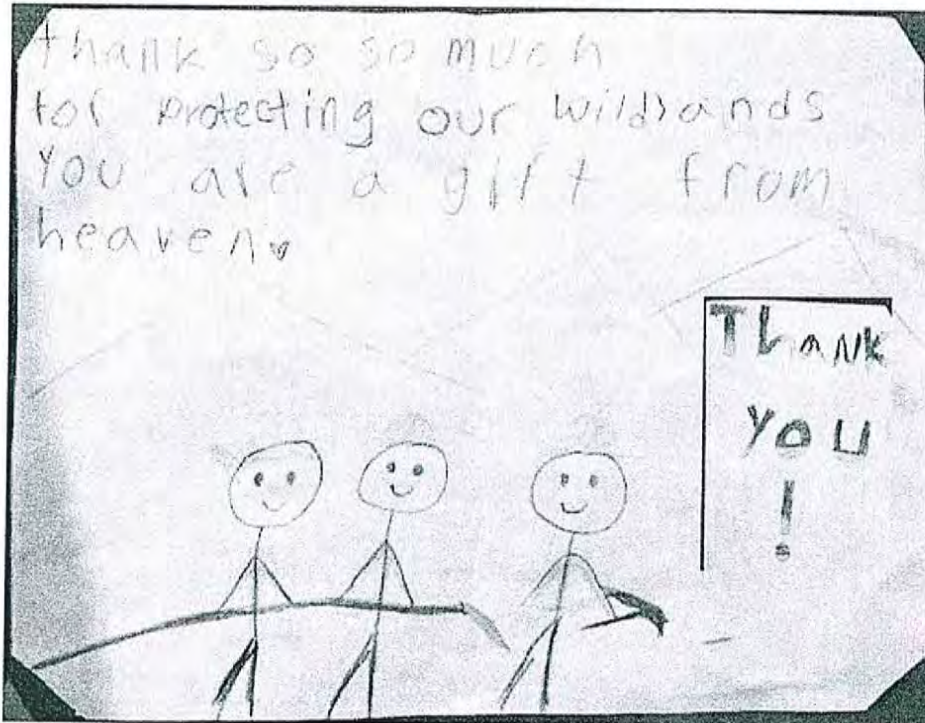 thank so so much
for protecting our wildlands
you are a gift from
heaven
Thank
you
!